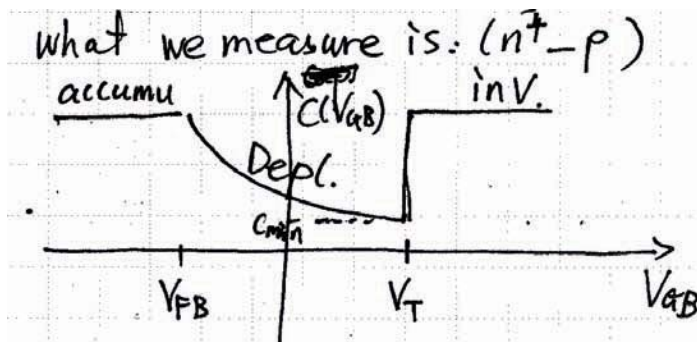 what we measure is: (n⁺-p)
accumu
inV.
C(V_GB)
Depl.
C_min
V_FB
V_T
V_GB